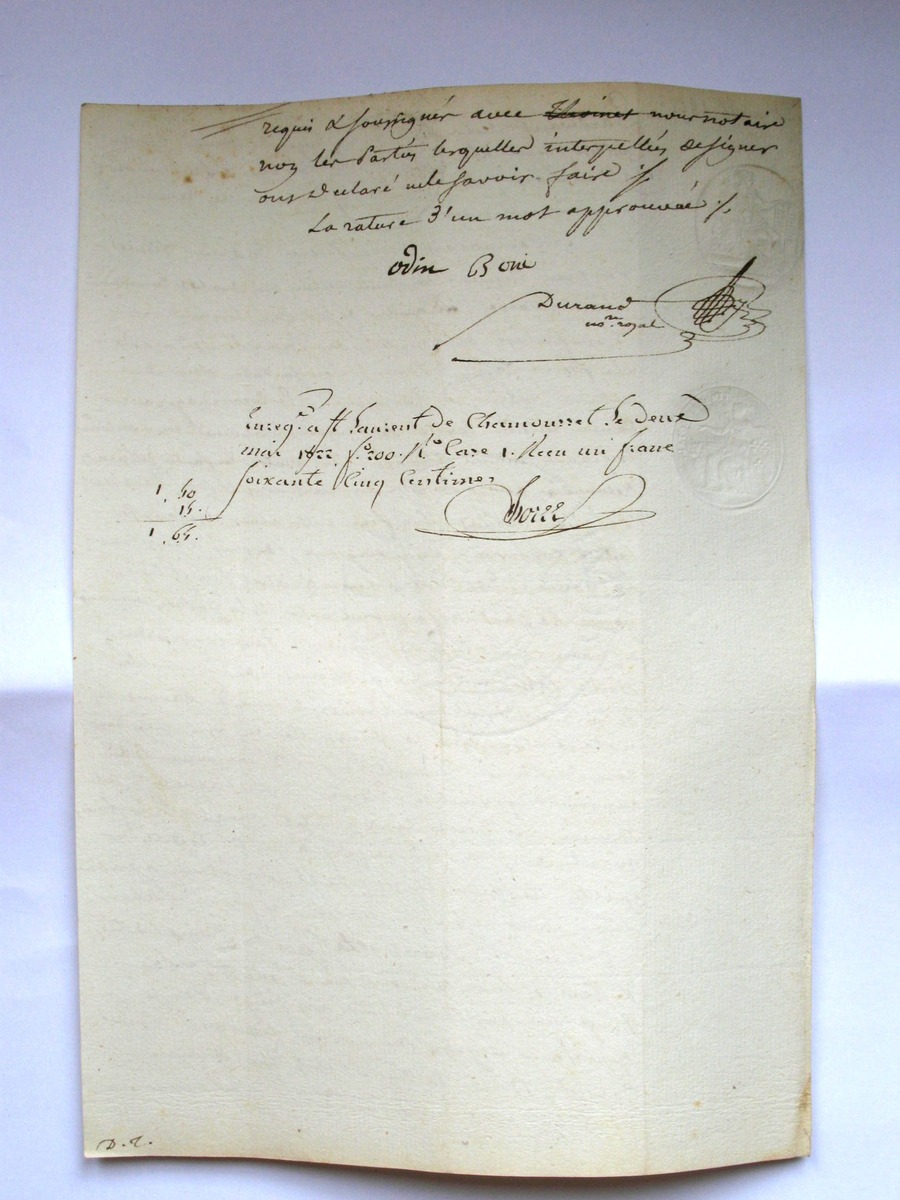 requis & soussignés avec Thoinet nous notaire
non les Parties lesquelles interpellées de signer
ont declaré ne le savoir faire ./.
La rature d'un mot approuvée ./.
odin Boiie
Durand
no.re royal
Enreg.é a St Laurent de Chamousset le deux
mai 1822 f.o 200. R.to Case 1. Recu un franc
soixante cinq centimes
1. 50
15.
1. 65.
D. 2.